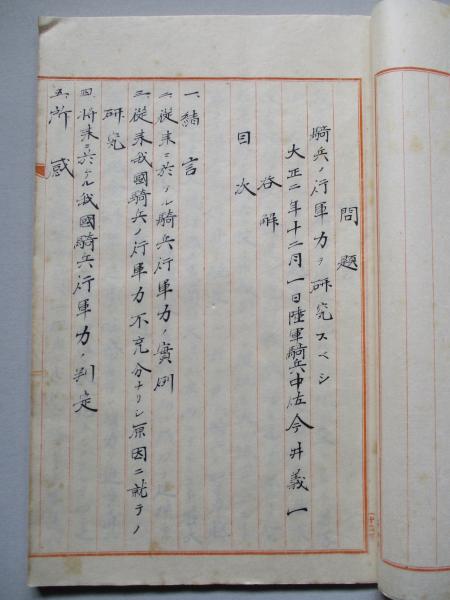 問題
騎兵ノ行軍力ヲ研究スベシ
大正二年十二月一日陸軍騎兵中佐今井義一
答解
目次
一、緒言
二、従来ニ於ケル騎兵行軍力ノ實例
三、従来我國騎兵ノ行軍力不充分ナリシ原因ニ就テノ
研究
四、将来ニ於ケル我國騎兵行軍力ノ判定
五、所感